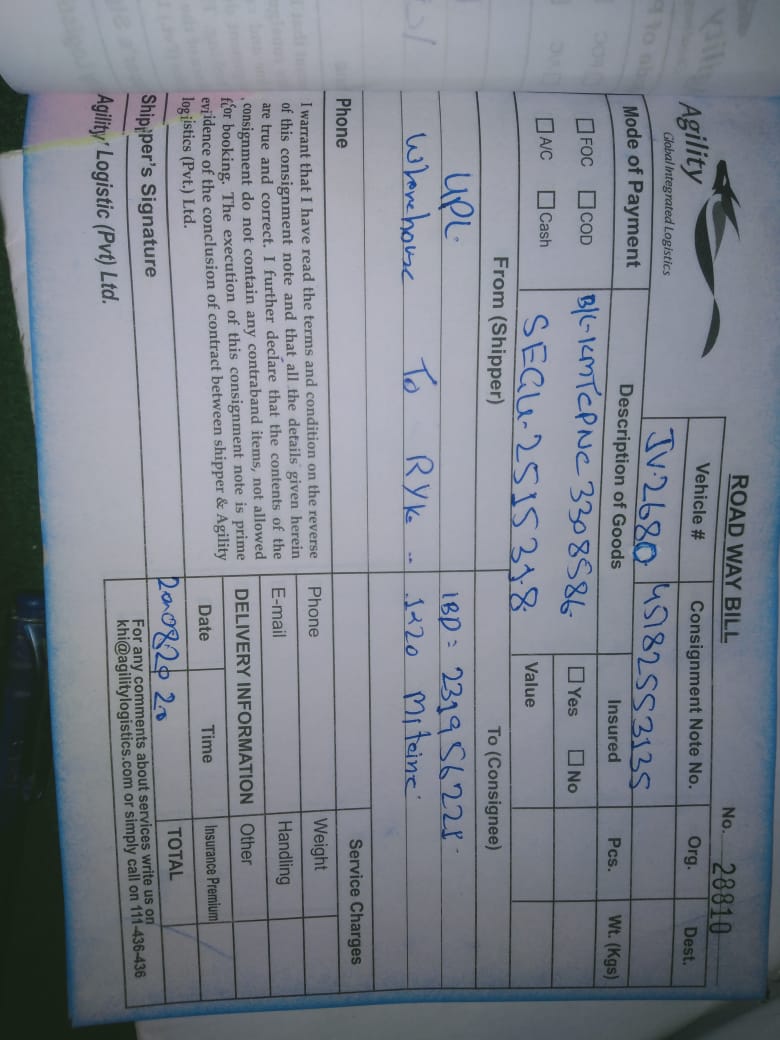 ROAD WAY BILL
No. 28810
Agility
Global Integrated Logistics
Vehicle #
Consignment Note No.
Org.
Dest.
JV-2680
45182553135
Mode of Payment
Description of Goods
Insured
Pcs.
Wt. (Kgs)
FOC
COD
B/L-KMTCPNC 3308586
Yes
No
A/C
Cash
SEGU-251531-8
Value
From (Shipper)
To (Consignee)
UPL
IBD: 231956221
Wherehouse To RYK
1x20
Phone
Service Charges
I warrant that I have read the terms and condition on the reverse
of this consignment note and that all the details given herein
are true and correct. I further declare that the contents of the
consignment do not contain any contraband items, not allowed
for booking. The execution of this consignment note is prime
evidence of the conclusion of contract between shipper & Agility
logistics (Pvt.) Ltd.
Phone
Weight
E-mail
Handling
DELIVERY INFORMATION
Other
Date
Time
Insurance Premium
TOTAL
Shipper's Signature
For any comments about services write us on
khi@agilitylogistics.com or simply call on 111-436-436
Agility Logistic (Pvt) Ltd.